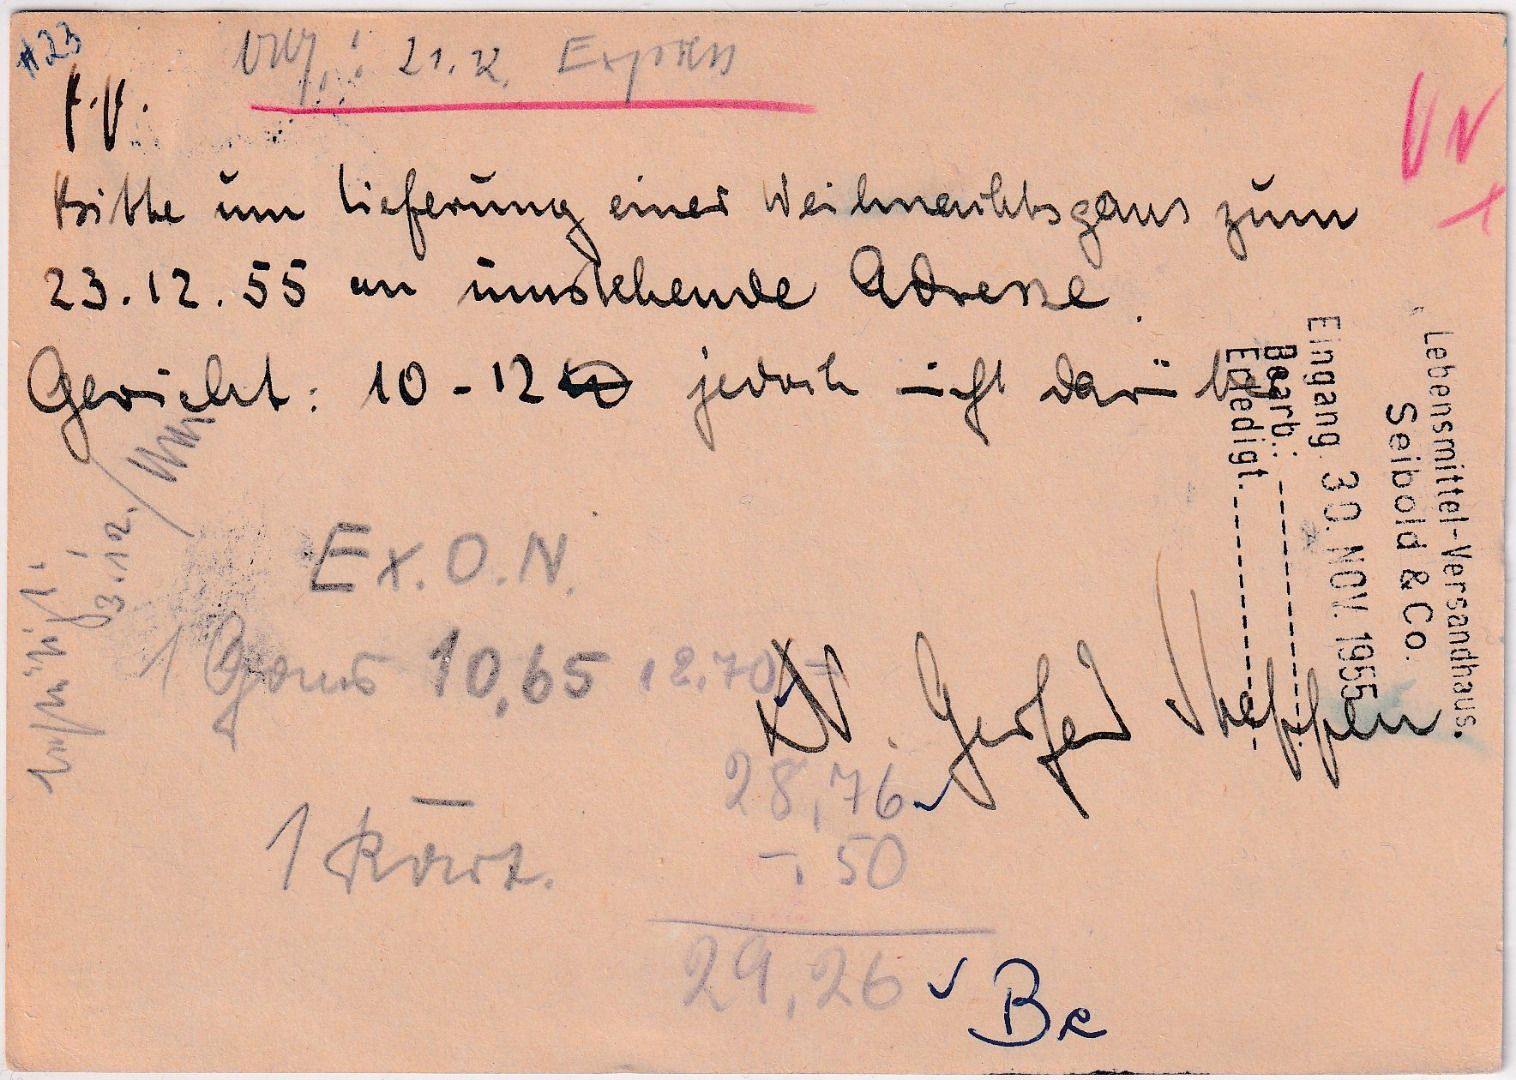 #23
21.12. Express
VN
1
P.P.
Bitte um Lieferung einer Weihnachtsgans zum
23.12.55 an umstehende Adresse.
Gewicht: 10-12 ℔ jedoch nicht darüber
Lebensmittel-Versandhaus.
Seibold & Co.
Eingang 30. NOV. 1955
Bearb.:
Erledigt.
3.12.
Ex. O. N.
1 Gans 10,65 12.70 =
Dr. Gerhard
28,76
-,50
1
29,26
Be